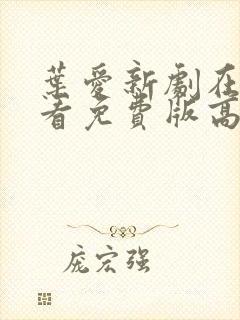 葉愛新劇在
看免費版高
庞宏强